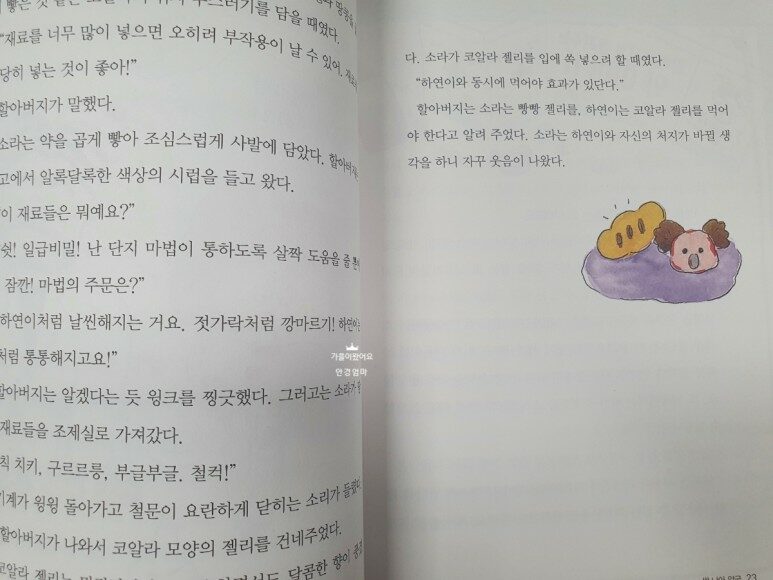 빻은 것 같은
담을 때였다.
“재료를 너무 많이 넣으면 오히려 부작용이 날 수 있어.
당히 넣는 것이 좋아!”
할아버지가 말했다.
소라는 약을 곱게 빻아 조심스럽게 사발에 담았다. 할아버지는
고에서 알록달록한 색상의 시럽을 들고 왔다.
이 재료들은 뭐예요?”
쉿! 일급비밀! 난 단지 마법이 통하도록 살짝 도움을 줄
잠깐! 마법의 주문은?”
하연이처럼 날씬해지는 거요. 젓가락처럼 깡마르기! 하연이는
처럼 통통해지고요!”
할아버지는 알겠다는 듯 윙크를 찡긋했다. 그러고는 소라가
재료들을 조제실로 가져갔다.
칙 치키, 구르르릉, 부글부글. 철컥!”
기계가 윙윙 돌아가고 철문이 요란하게 닫히는 소리가 들렸다.
할아버지가 나와서 코알라 모양의 젤리를 건네주었다.
코알라 젤리는 달콤한 향이
가을이왔어요
안경엄마
다. 소라가 코알라 젤리를 입에 쏙 넣으려 할 때였다.
“하연이와 동시에 먹어야 효과가 있단다.”
할아버지는 소라는 빵빵 젤리를, 하연이는 코알라 젤리를 먹어
야 한다고 알려 주었다. 소라는 하연이와 자신의 처지가 바뀔 생
각을 하니 자꾸 웃음이 나왔다.
23